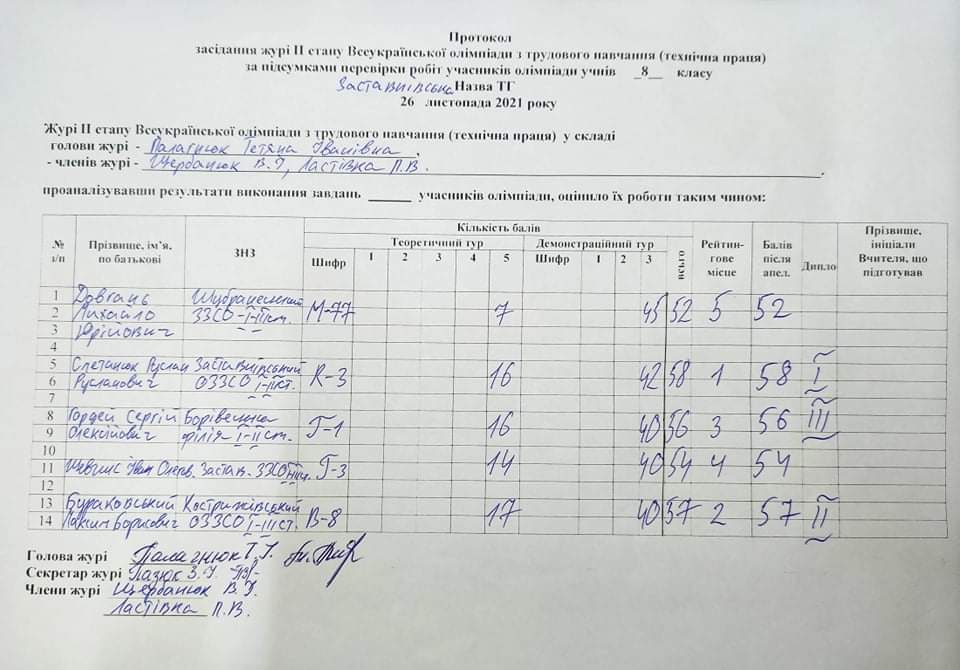 Протокол
засідання журі ІІ етапу Всеукраїнської олімпіади з трудового навчання (технічна праця)
за підсумками перевірки робіт учасників олімпіади учнів _8_ класу
Заставнівська Назва ТГ
26 листопада 2021 року
Журі ІІ етапу Всеукраїнської олімпіади з трудового навчання (технічна праця) у складі
голови журі - Палагнюк Тетяна Іванівна,
- членів журі - Щербанюк В.І, Ластівка П.В.
проаналізувавши результати виконання завдань ______ учасників олімпіади, оцінило їх роботи таким чином:
№ з/п Прізвище, ім'я, по батькові ЗНЗ Кількість балів Рейтин-гове місце Балів після апел. Дипло Прізвище, ініціали Вчителя, що підготував
Теоретичний тур Демонстраційний тур всього
Шифр 1 2 3 4 5 Шифр 1 2 3
1 Довгань
2 Михайло ЗЗСО І-ІІІст. М-77 7 45 52 5 52
3 Юрійович
4
5 Руслан Заставнівський
6 Русланович ОЗЗСО І-ІІІст. К-3 16 42 58 1 58 І
7
8 Гордей Сергій Борівецька
9 Олексійович філія І-ІІст. Г-1 16 40 56 3 56 ІІІ
10
11 Іван Олекс. Застав. ЗЗСО Г-3 14 40 54 4 54
12
13 Бураковський Кострижівський
14 Максим Борисович ОЗЗСО І-ІІІст. В-8 17 40 57 2 57 ІІ
Голова журі Палагнюк Т.І.
Секретар журі Лазюк З.І.
Члени журі Щербанюк В.І.
Ластівка П.В.